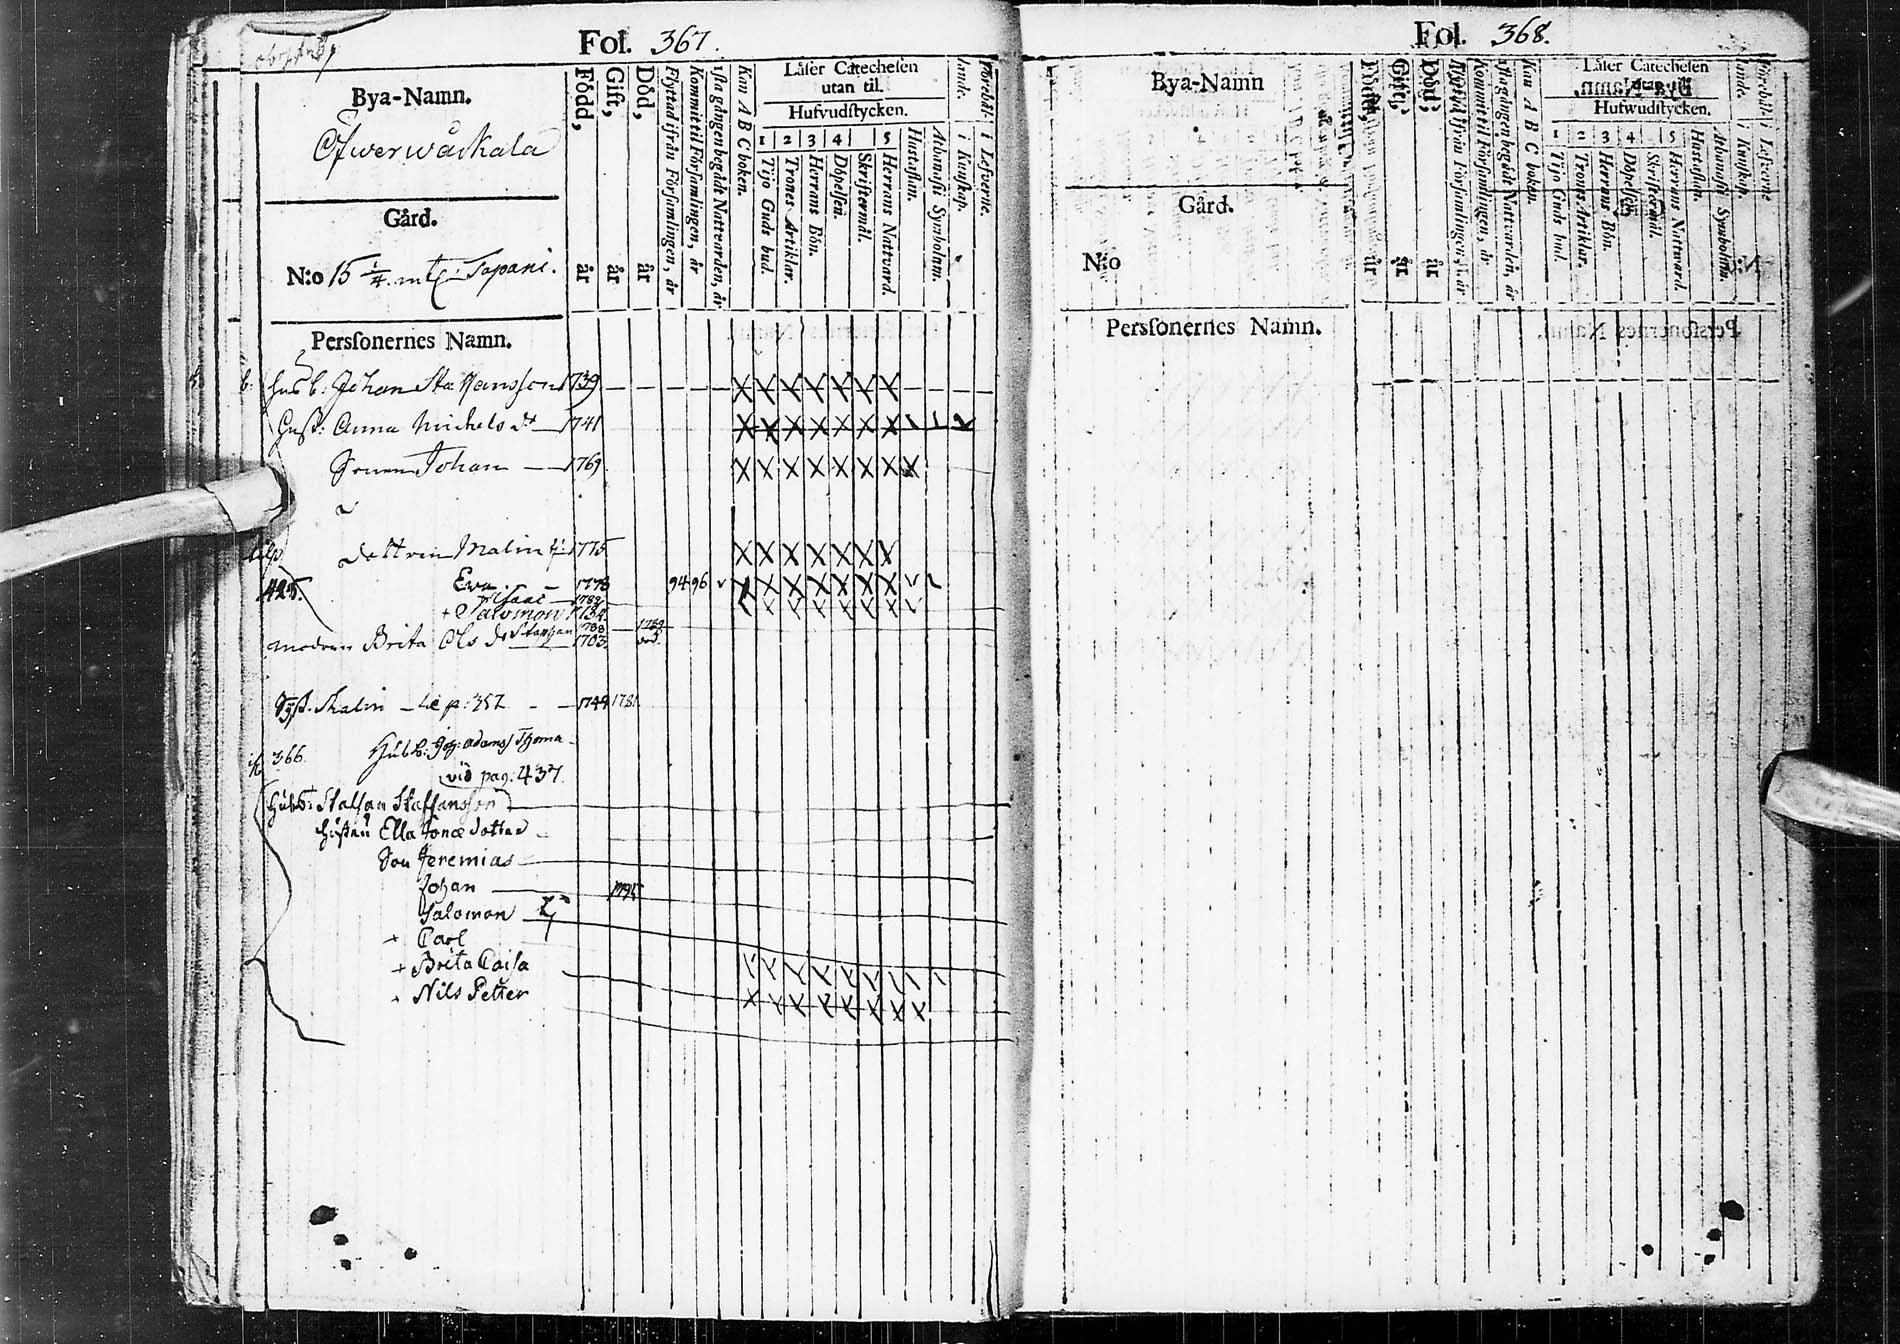 Fol. 367.
Bya-Namn.
Öfwerwåskala
Gård.
N:o 15 1/4 mtl: Tapani.
Född, år
Gift, år
Död, år
Flyttad ifrån Församlingen, år
Kommit til Församlingen, år
1sta gången begådt Nattvarden, år
Kan A B C boken.
Låser Catechesen
utan til.
Hufvudstycken.
1 2 3 4 5
Tijo Guds bud.
Trones Artiklar.
Herrans Bön.
Döpelsen.
Skriftermål.
Herrans Natvard.
Hustaflan.
Athanasii Symbolum.
i Kunskap.
i Lefverne.
Personernes Namn.
Husb: Johan Staffansson 1739
Hust: Anna Michels dr 1741
Sonen Johan 1769
dottren Malin 1775
Eva 1778 94 96
425.
Isaac 1782
+ Salomon
Staphan 1788 1789
modren Brita Ols dr 1703 död.
Syst. Malin 357 1749 1781
366. Husb: Joh: Adamss Thoma
vid pag: 437
Husb: Staffan Staffansson
hustru Ella Jonæ dotter
Son Jeremias
Johan 1795
Salomon
+ Carl
+ Brita Caisa
+ Nils Petter
Fol. 368.
Bya-Namn
Gård.
N:o
Född, år
Gift, år
Död, år
Flyttad ifrån Församlingen, år
Kommit til Församlingen, år
1sta gången begådt Nattvarden, år
Kan A B C boken.
Låser Catechesen
utan til.
Hufwudstycken.
1 2 3 4 5
Tijo Guds bud.
Trones Artiklar.
Herrans Bön.
Döpelsen.
Skriftermål.
Herrans Nattward.
Hustaflan.
Athanasii Symbolum.
i Kunskap.
i Lefverne
Personernes Namn.